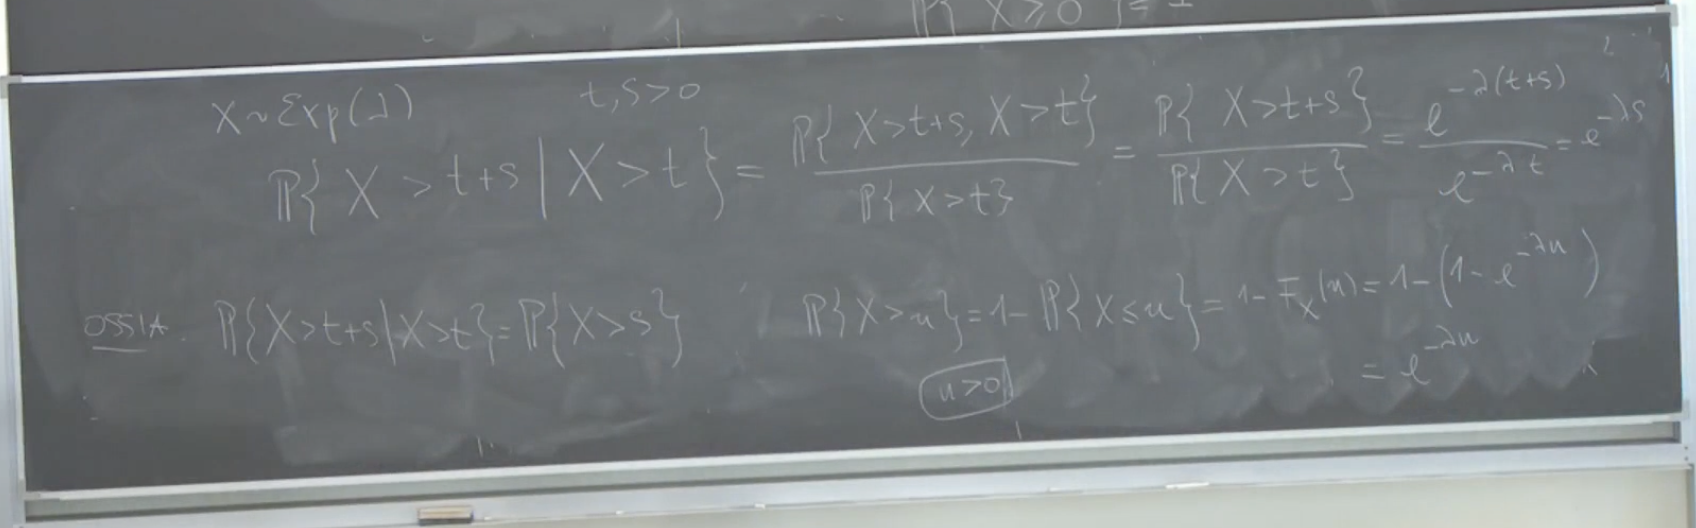 P{ X ≥ 0 } = 1
X ~ Exp(λ) t, s > 0
P{ X > t+s | X > t } = P{ X > t+s, X > t } / P{ X > t } = P{ X > t+s } / P{ X > t } = e^{-λ(t+s)} / e^{-λt} = e^{-λs}
OSSIA P{ X > t+s | X > t } = P{ X > s } P{ X > u } = 1 - P{ X ≤ u } = 1 - F_X(u) = 1 - (1 - e^{-λu})
u > 0 = e^{-λu}